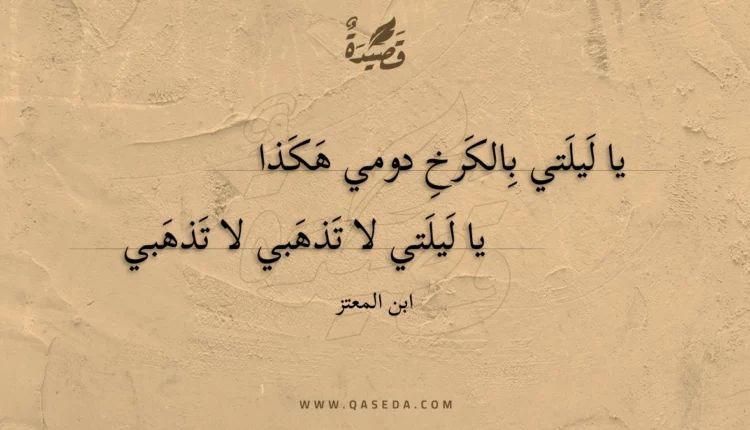 قَصِيدَةٌ
يا لَيلَتي بِالكَرخِ دومي هَكَذا
يا لَيلَتي لا تَذهَبي لا تَذهَبي
ابن المعتز
WWW.QASEDA.COM